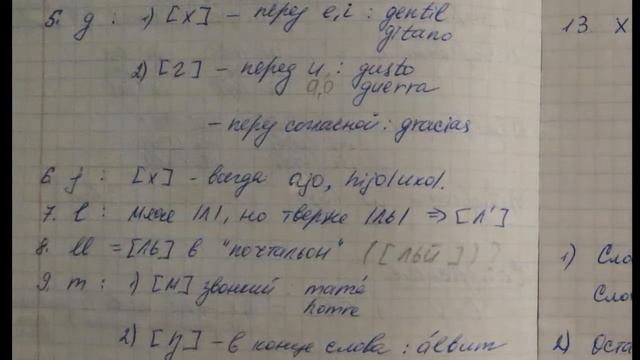 5. g : 1) [х] – перед e, i : gentil
gitano
2) [г] – перед u, : gusto
a, o guerra
– перед согласной : gracias
6. j : [х] – всегда ajo, hijo/ихо/.
7. l : мягче /л/, но тверже /ль/ ⇒ [л']
8. ll = [ль] в "почтальон" ([льй])?
9. m : 1) [м] звонкий mamá
2) [н] – в конце слова : álbum
13. X
1) Сло
Сло
2) Оста